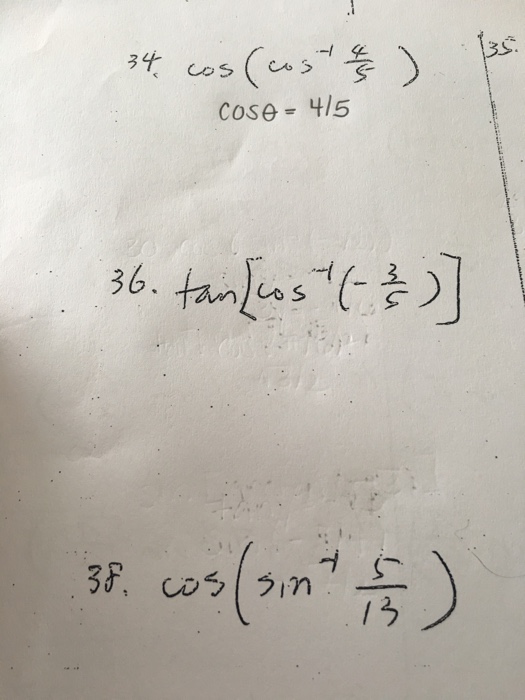 34. cos(cos⁻¹ 4/5) 35.
cosθ = 4/5
36. tan[cos⁻¹(-3/5)]
38. cos(sin⁻¹ 5/13)